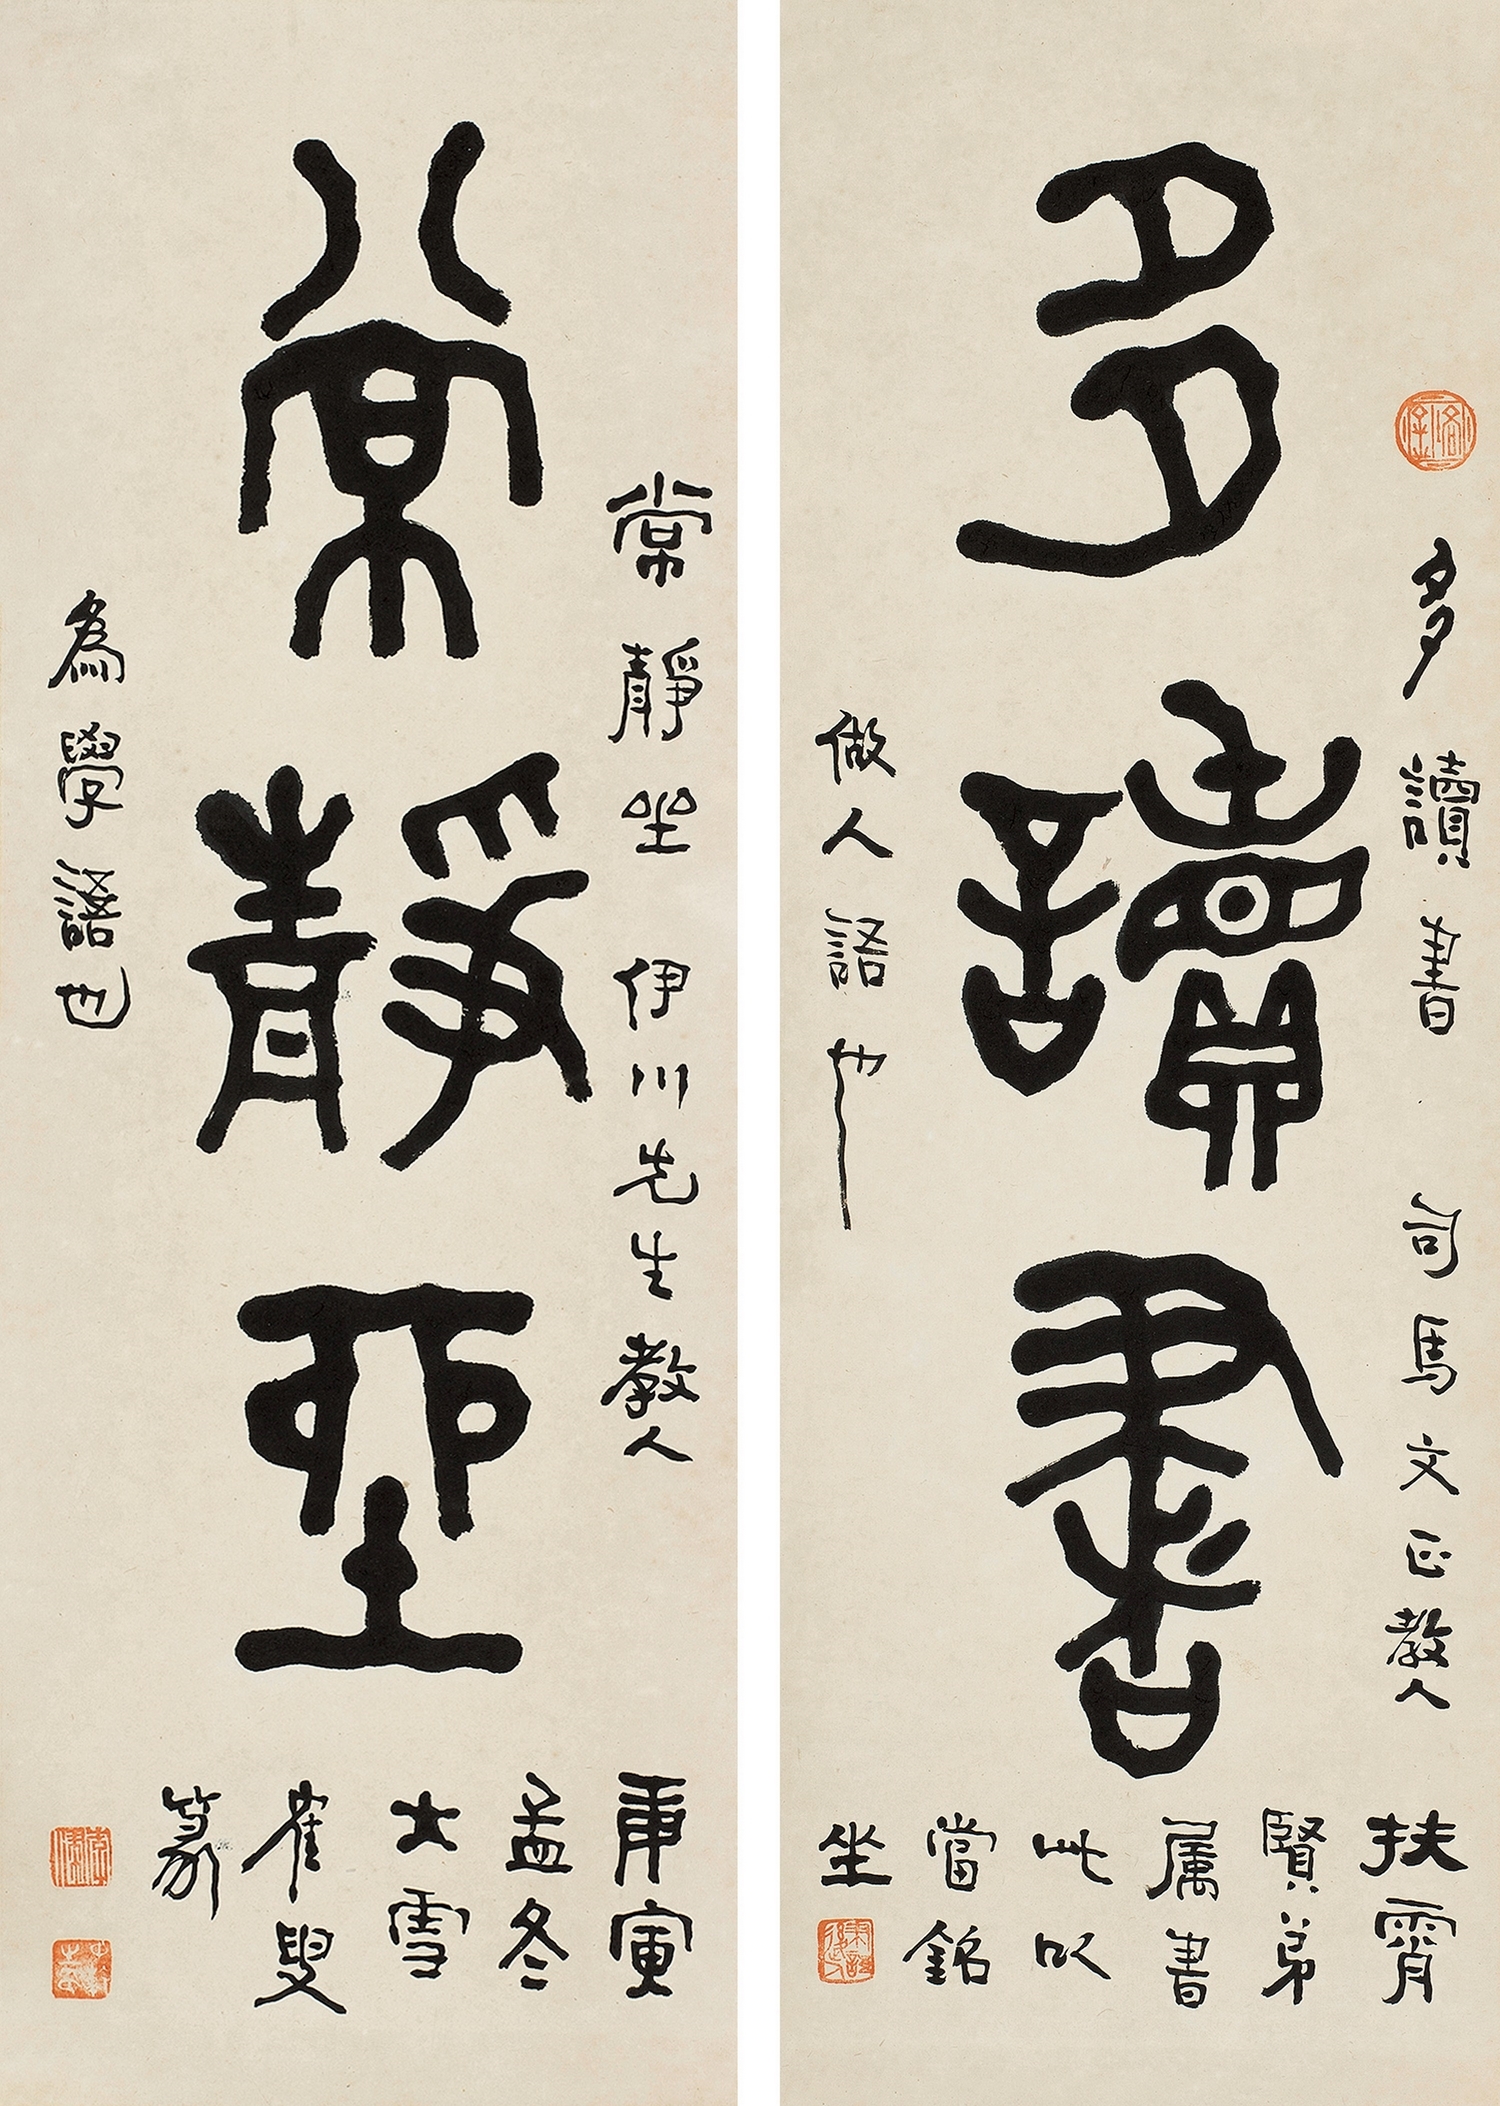 多讀書
多讀書 司馬文正教人
做人語也
扶霄
賢弟
属書
此以
當銘
坐
常靜坐
常靜坐 伊川先生教人
為學語也
庚寅
孟冬
大雪
崔叟
篆